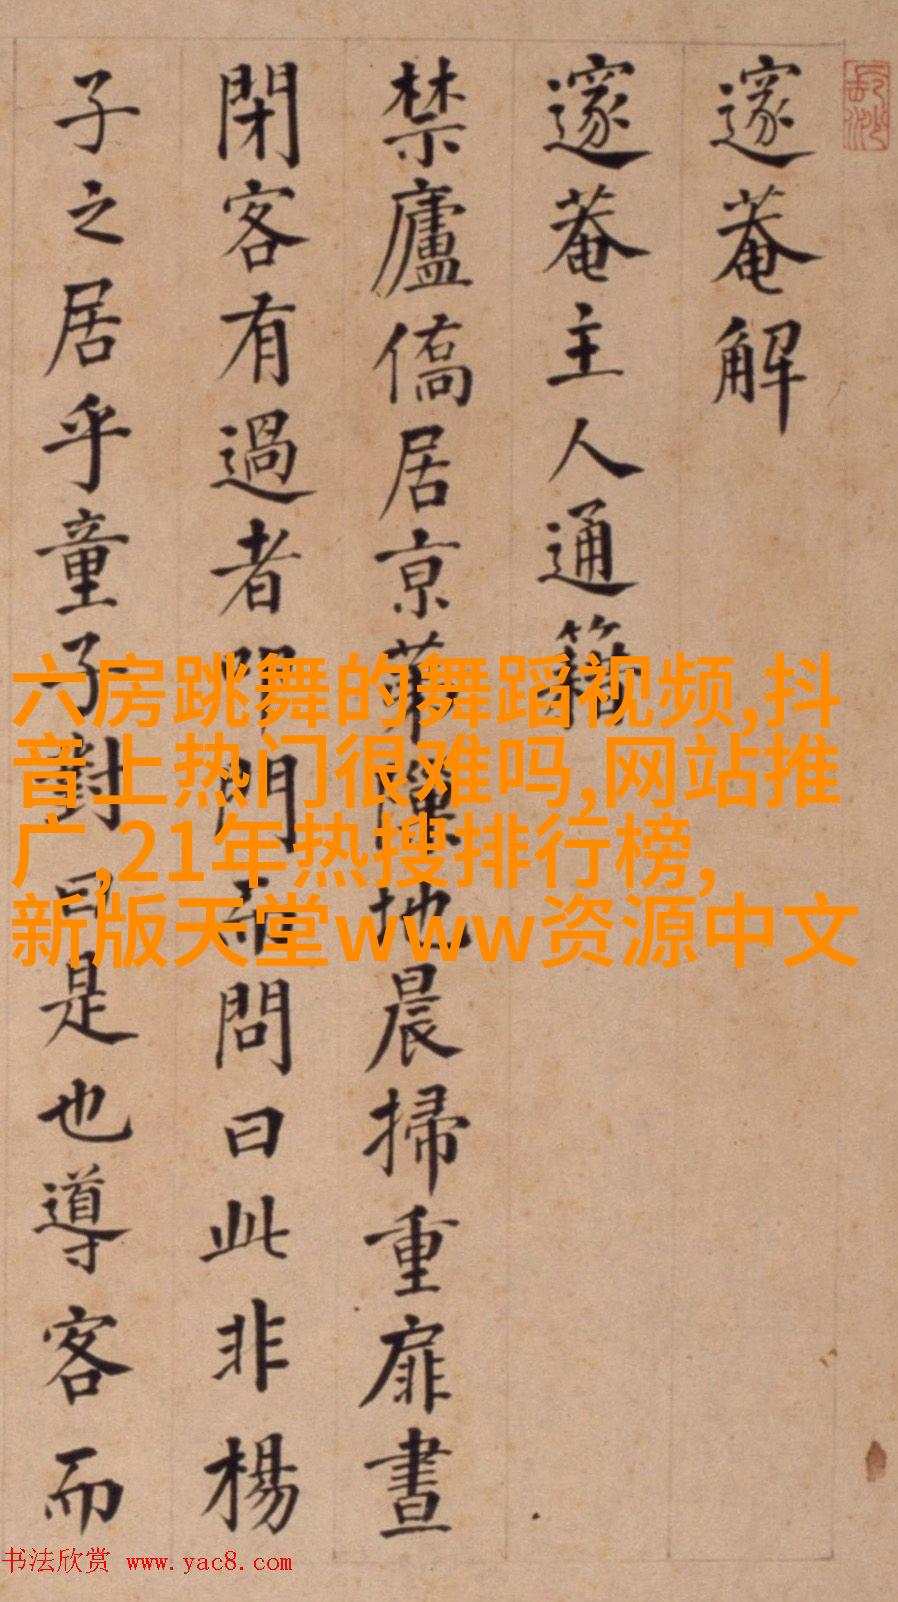 邃菴解
邃菴主人通籍
禁廬僑居京華隙地晨掃重扉晝
閉客有過者叩門而問曰此非楊
子之居乎童子對曰是也導客而
六房跳舞的舞蹈视频,抖
音上热门很难吗,网站推
广,21年热搜排行榜,
新版天堂www资源中文
书法欣赏 www.yac8.com